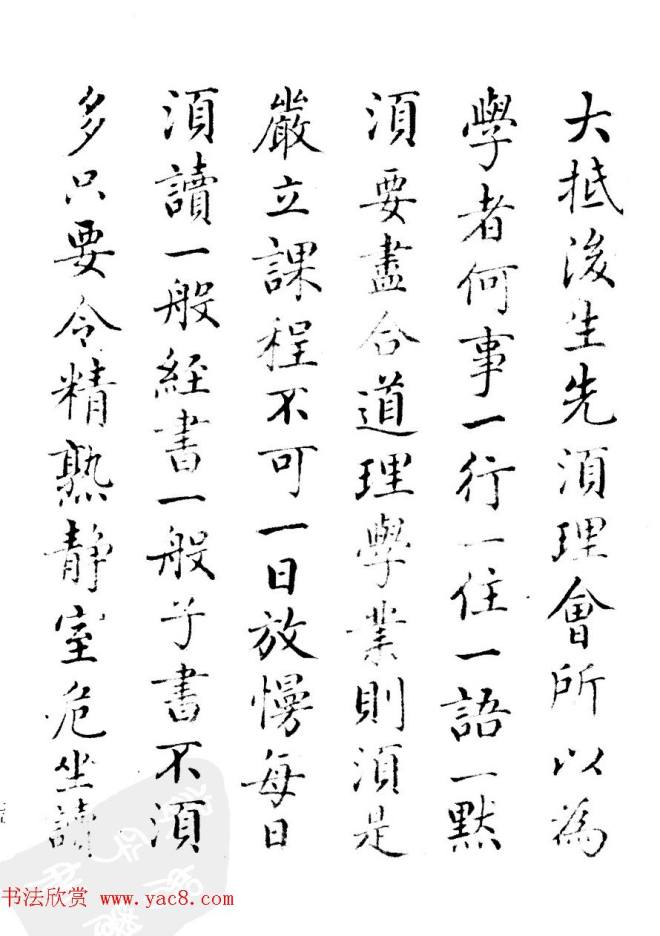 大抵後生先須理會所以為
學者何事一行一住一語一默
須要盡合道理學業則須是
嚴立課程不可一日放慢每日
須讀一般經書一般子書不須
多只要令精熟靜室危坐讀
书法欣赏 www.yac8.com